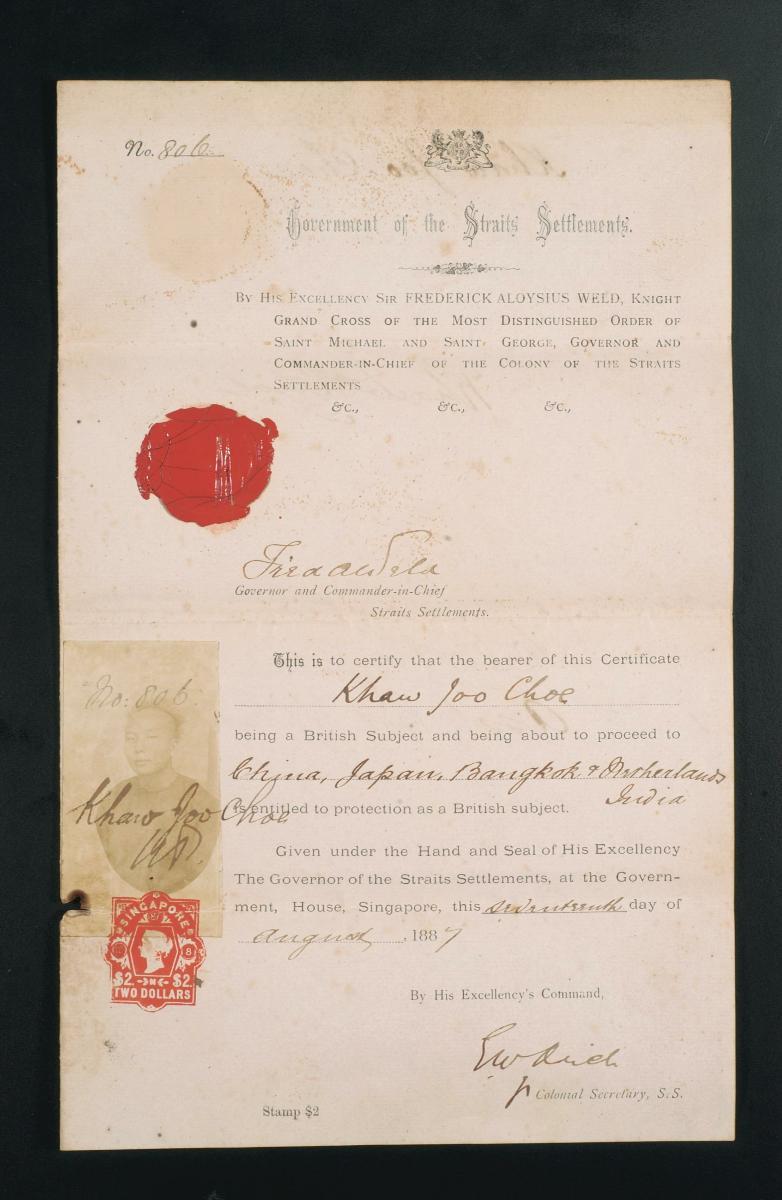 No. 806
Government of the Straits Settlements.
By His Excellency Sir FREDERICK ALOYSIUS WELD, Knight
Grand Cross of the Most Distinguished Order of
Saint Michael and Saint George, Governor and
Commander-in-Chief of the Colony of the Straits
Settlements
&c., &c., &c.,
Fred A Weld
Governor and Commander-in-Chief
Straits Settlements.
This is to certify that the bearer of this Certificate
Khaw Joo Choe
being a British Subject and being about to proceed to
China, Japan, Bangkok & Netherlands
India
is entitled to protection as a British subject.
Given under the Hand and Seal of His Excellency
The Governor of the Straits Settlements, at the Govern-
ment, House, Singapore, this seventeenth day of
August, 1887
By His Excellency's Command,
Colonial Secretary, S.S.
Stamp $2
No: 806
Khaw Joo Choe
SINGAPORE
8
$2. $2.
TWO DOLLARS